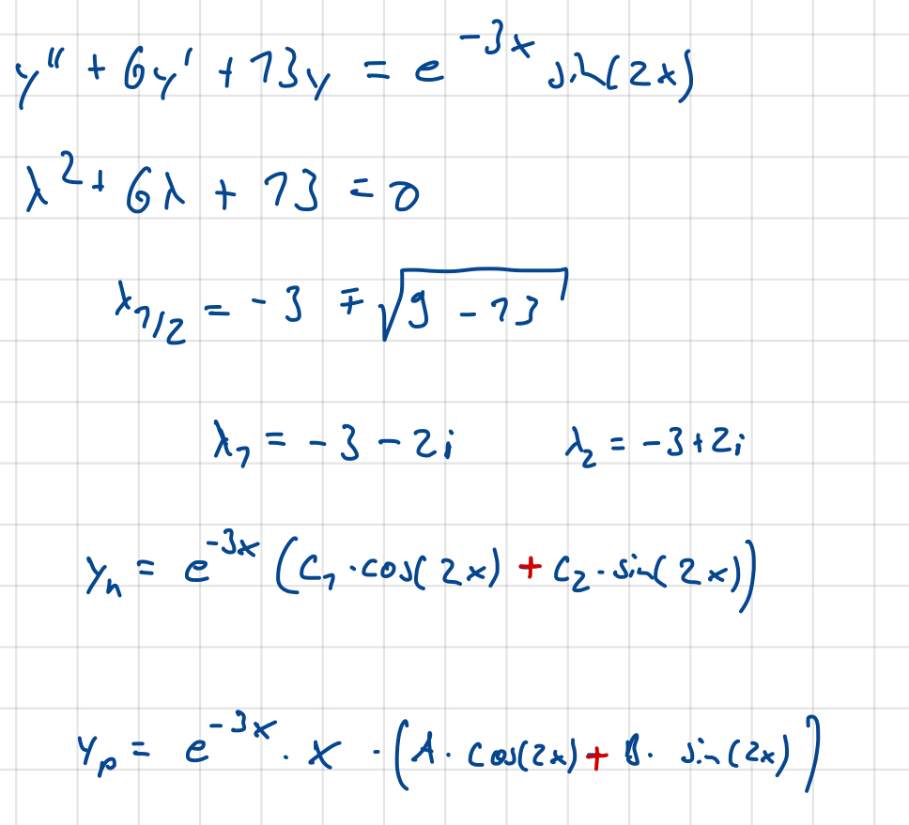 y'' + 6y' + 13y = e^{-3x} sin(2x)
λ^2 + 6λ + 13 = 0
λ_{1/2} = -3 ∓ √(9 - 13)
λ_1 = -3 - 2i λ_2 = -3 + 2i
y_h = e^{-3x} (C_1 · cos(2x) + C_2 · sin(2x))
y_p = e^{-3x} · x · (A · cos(2x) + B · sin(2x))